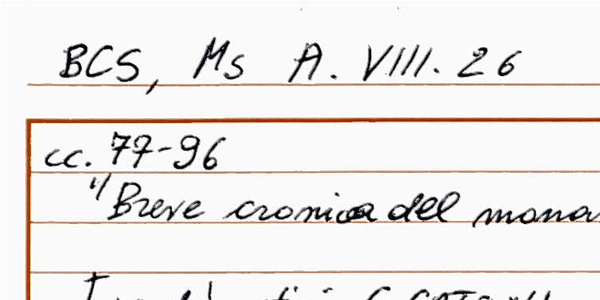 BCS, Ms A. VIII. 26
cc. 77-96
"Breve cronica del mona